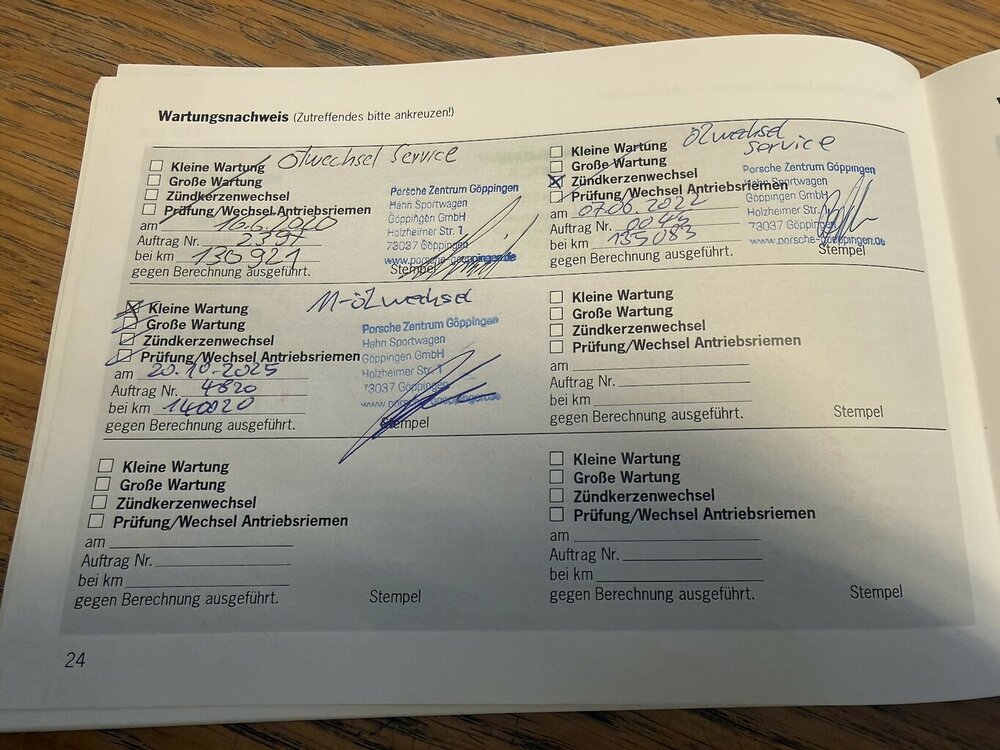 Wartungsnachweis (Zutreffendes bitte ankreuzen!)
Kleine Wartung Ölwechsel Service
Große Wartung
Zündkerzenwechsel
Prüfung/Wechsel Antriebsriemen
am 16.6.2020
Auftrag Nr. 2397
bei km 130921
gegen Berechnung ausgeführt.
Porsche Zentrum Göppingen
Hahn Sportwagen
Göppingen GmbH
Holzheimer Str. 1
73037 Göppingen
www.porsche-goeppingen.de
Stempel
Kleine Wartung Ölwechsel
Große Wartung Service
Zündkerzenwechsel
Prüfung/Wechsel Antriebsriemen
am 07.06.2022
Auftrag Nr. 0044
bei km 135083
gegen Berechnung ausgeführt.
Porsche Zentrum Göppingen
Hahn Sportwagen
Göppingen GmbH
Holzheimer Str. 1
73037 Göppingen
www.porsche-goeppingen.de
Stempel
Kleine Wartung M-Ölwechsel
Große Wartung
Zündkerzenwechsel
Prüfung/Wechsel Antriebsriemen
am 20.10.2025
Auftrag Nr. 4820
bei km 140020
gegen Berechnung ausgeführt.
Porsche Zentrum Göppingen
Hahn Sportwagen
Göppingen GmbH
Holzheimer Str. 1
73037 Göppingen
www.porsche-goeppingen.de
Stempel
Kleine Wartung
Große Wartung
Zündkerzenwechsel
Prüfung/Wechsel Antriebsriemen
am
Auftrag Nr.
bei km
gegen Berechnung ausgeführt.
Stempel
Kleine Wartung
Große Wartung
Zündkerzenwechsel
Prüfung/Wechsel Antriebsriemen
am
Auftrag Nr.
bei km
gegen Berechnung ausgeführt.
Stempel
Kleine Wartung
Große Wartung
Zündkerzenwechsel
Prüfung/Wechsel Antriebsriemen
am
Auftrag Nr.
bei km
gegen Berechnung ausgeführt.
Stempel
24